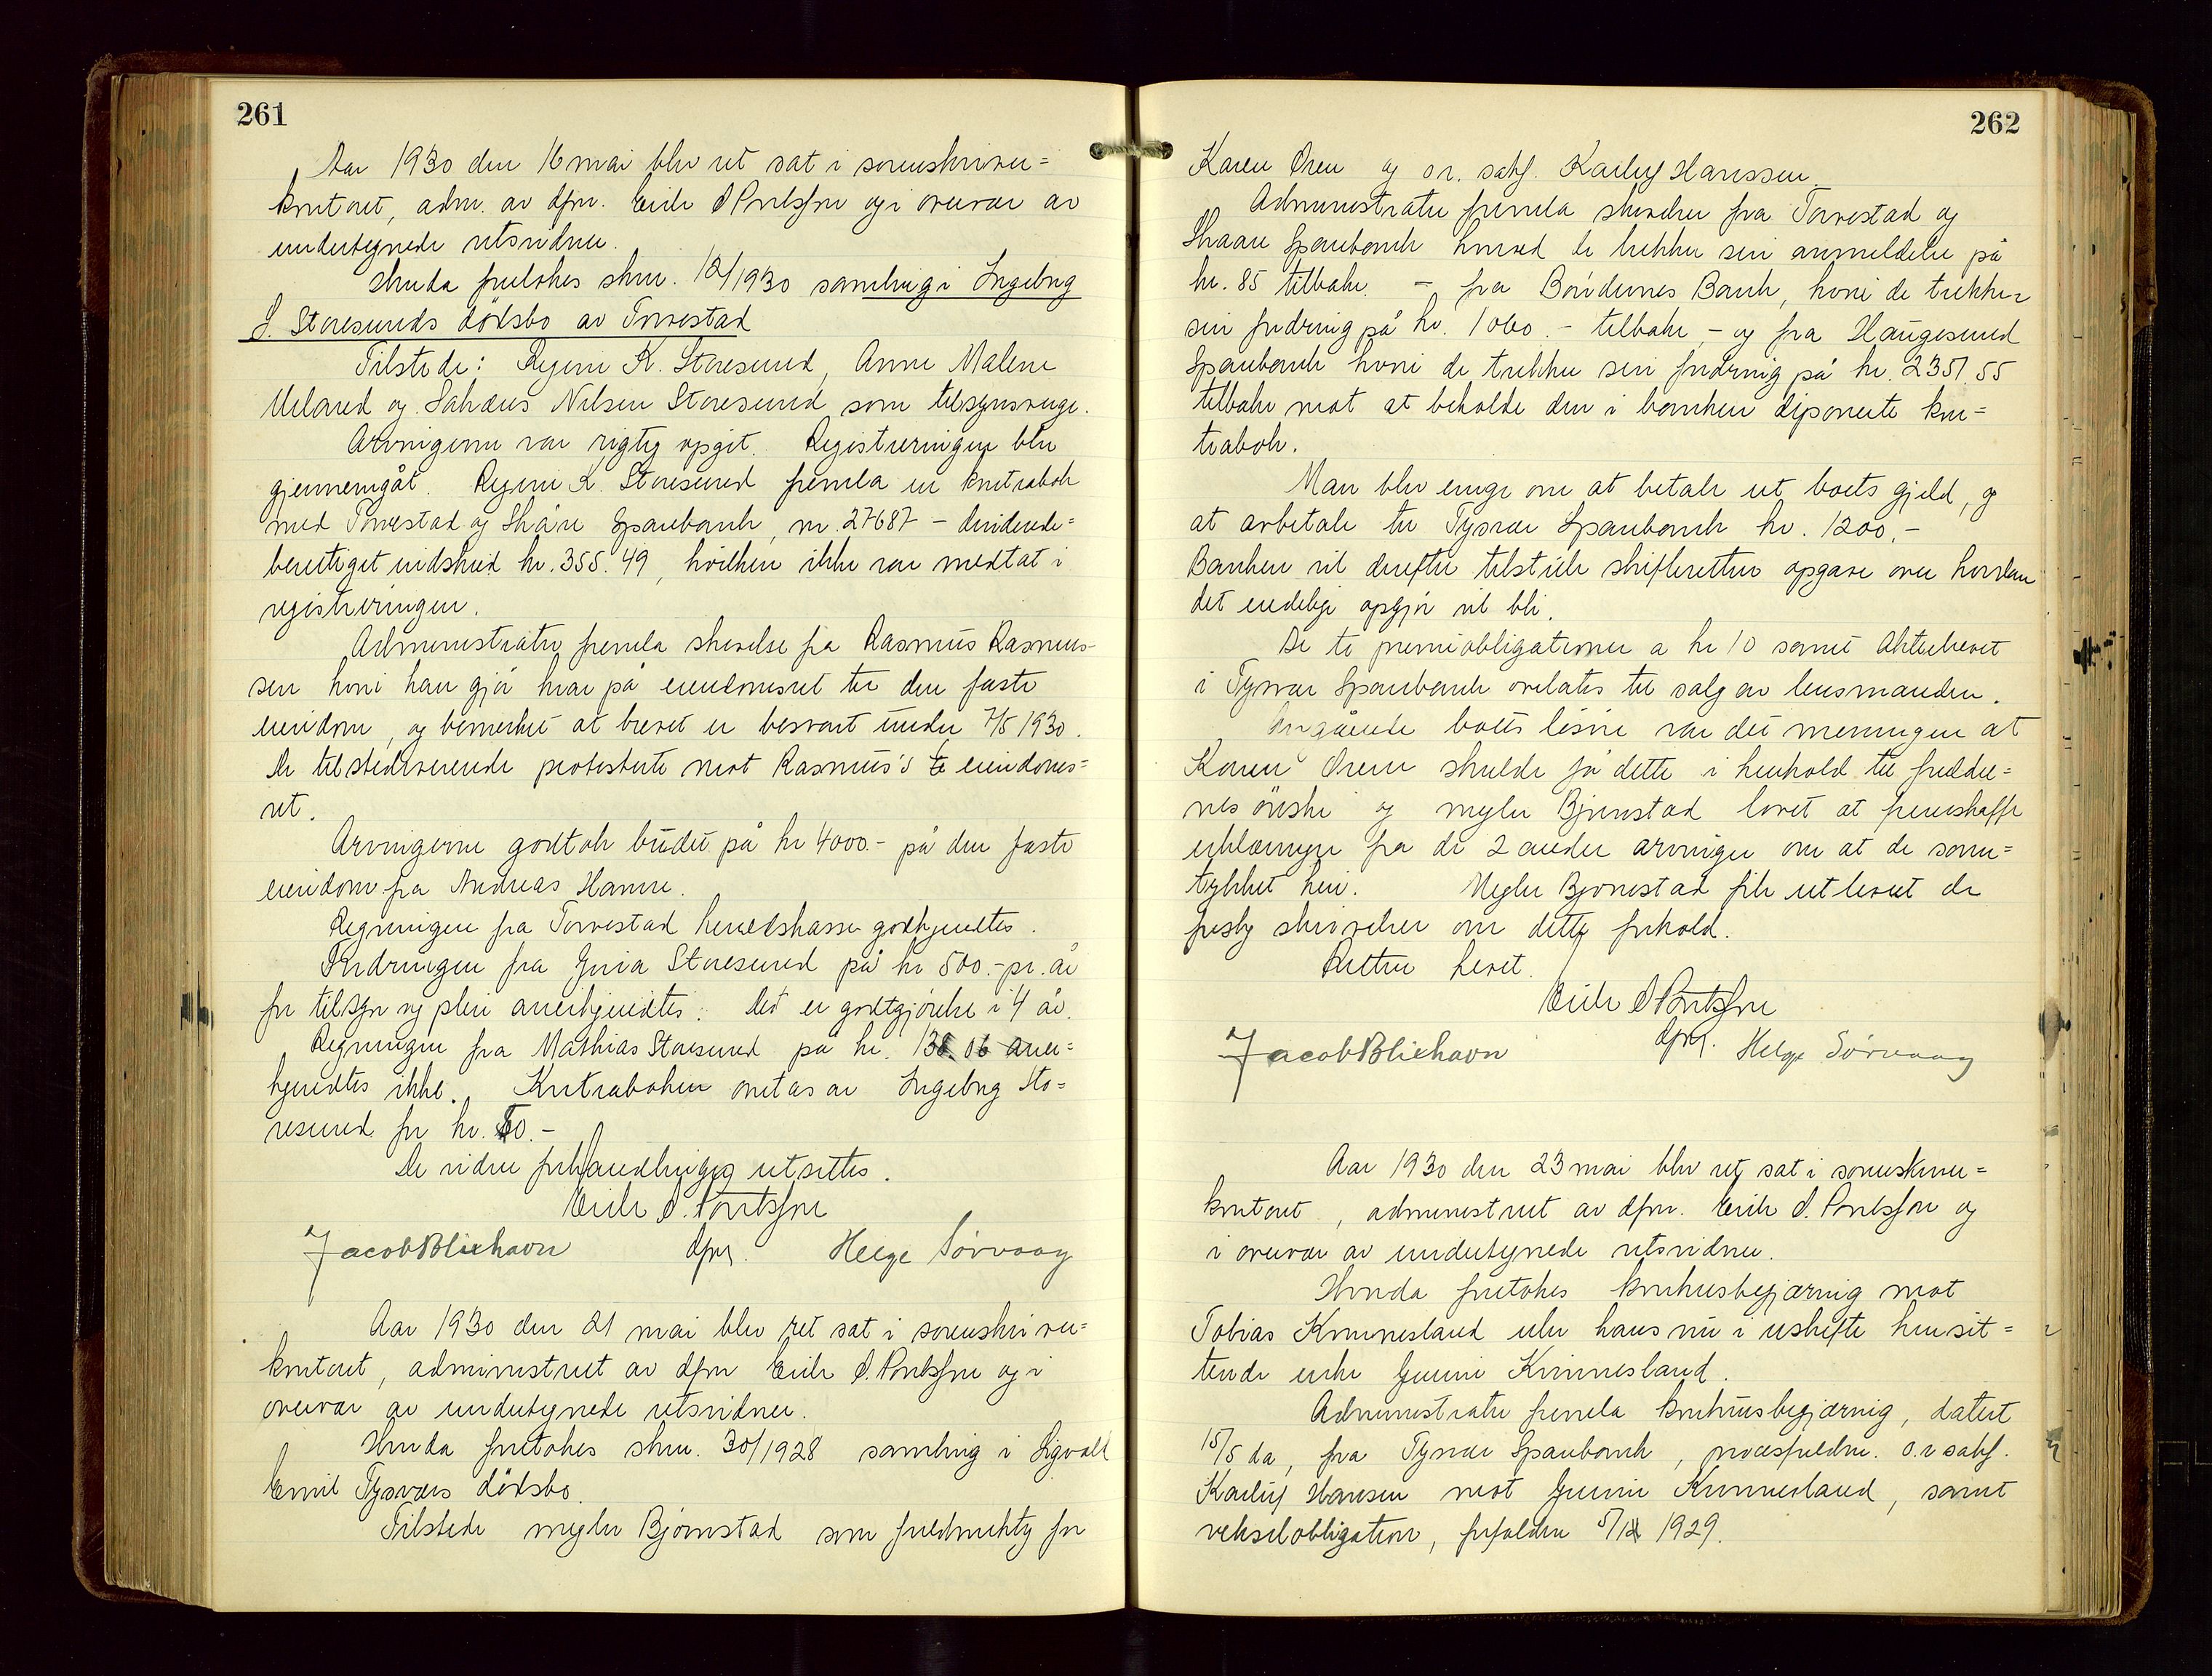 261
Aar 1930 den 16 mai blev ret sat i sorenskriver=
kontoret, adm. av dfm. Eirik S Pontsfon og i overvær av
undertegnede retsvidner.
Hvada foretokes skm. 12/1930 samling i Ingeborg
S. Storesunds dödsbo av Torvestad
Tilstede: Regine K. Storesund, Anne Malene
Meland og Sakæus Nilsen Storesund som tilsynsverge.
Arvingerne var rigtig opgit. Registreringen blev
gjennemgåt. Regine K. Storesund fremla en kontrabok
med Torvestad og Skåre Sparebank, nr. 27687 – dividende=
berettiget indskud kr. 355.49, hvilken ikke var medtat i
registreringen.
Administrator fremla skrivelse fra Rasmus Rasmus-
sen hvori han gjør krav på eiendomsret til den faste
eiendom, og bemerket at brevet er besvart under 7/5 1930.
De tilstedeværende protesterte mot Rasmus's eiendoms=
ret.
Arvingerne godtok budet på kr 4000.- på den faste
eiendom fra Andreas Hanne.
Regningen fra Torvestad heredskasse godkjendtes.
Fordringen fra Jenia Storesund på kr 500.- pr. år
for tilsyn og pleie anerkjendtes. Det er godtgjörelse i 4 år.
Regningen fra Mathias Storesund på kr. 138.06 aner=
kjendtes ikke. Kontraboken overtas av Ingeborg Sto=
resund for kr. 50.-
De videre forhandlinger utsettes.
Eirik S. Pontsfon
Jacob Bliehavn dfm. Helge Sørvaag
Aar 1930 den 21 mai blev ret sat i sorenskriver=
kontoret, administrert av dfm Eirik S. Pontsfon og i
overvær av undertegnede retsvidner.
Hvada foretokes skm. 30/1928 samling i Sigvald
Emil Tysværs dödsbo.
Tilstede megler Bjørnstad som fuldmektig for
262
Karen Ören og o.r. sakf. Karluf Hanssen.
Administrator fremla skrivelser fra Torvestad og
Skaare Sparebank hvorved de trekker sin anmeldelse på
kr. 85 tilbake. – fra Böndernes Bank, hvori de trekker
sin fordring på kr. 1060.- tilbake, – og fra Haugesund
Sparebank hvori de trekker sin fordring på kr. 2351.55
tilbake mot at beholde den i banken diponerte kon=
trabok.
Man blev enige om at betale ut boets gjeld, og
at avbetale til Tysvær Sparebank kr. 1200.-
Banken vil derefter tilstille skifteretten opgave over hvordan
det endelige opgjör vil bli.
De to premieobligationer a kr 10 samt aktiebrevet
i Tysvær Sparebank overlates til salg av lensmanden.
Angående boets løsøre var det meningen at
Karen Ören skulde få dette i henhold til foreldre=
nes önske og megler Bjørnstad lovet at fremskaffe
erklæringer fra de 2 andre arvinger om at de sam=
tykket heri. Megler Bjørnestad fik utlevert de
skrivelser om dette forhold.
Retten hevet.
Eirik S Pontsfon
dfm.
Jacob Bliehavn Helge Sørvaag
Aar 1930 den 23 mai blev ret sat i sorenskriver=
kontoret, administrert av dfm. Eirik S. Pontsfon og
i overvær av undertegnede retsvidner.
Hvada foretokes konkursbegjæring mot
Tobias Kvinnesland eller hans nu i uskifte hensit=
tende enke Gunni Kvinnesland.
Administrator fremla konkursbegjæring, datert
15/5 da, fra Tysvær Sparebank, o.r. sakf.
Karluf Hansen mot Gunni Kvinnesland, samt
vekselobligation, forfalden 5/12 1929.